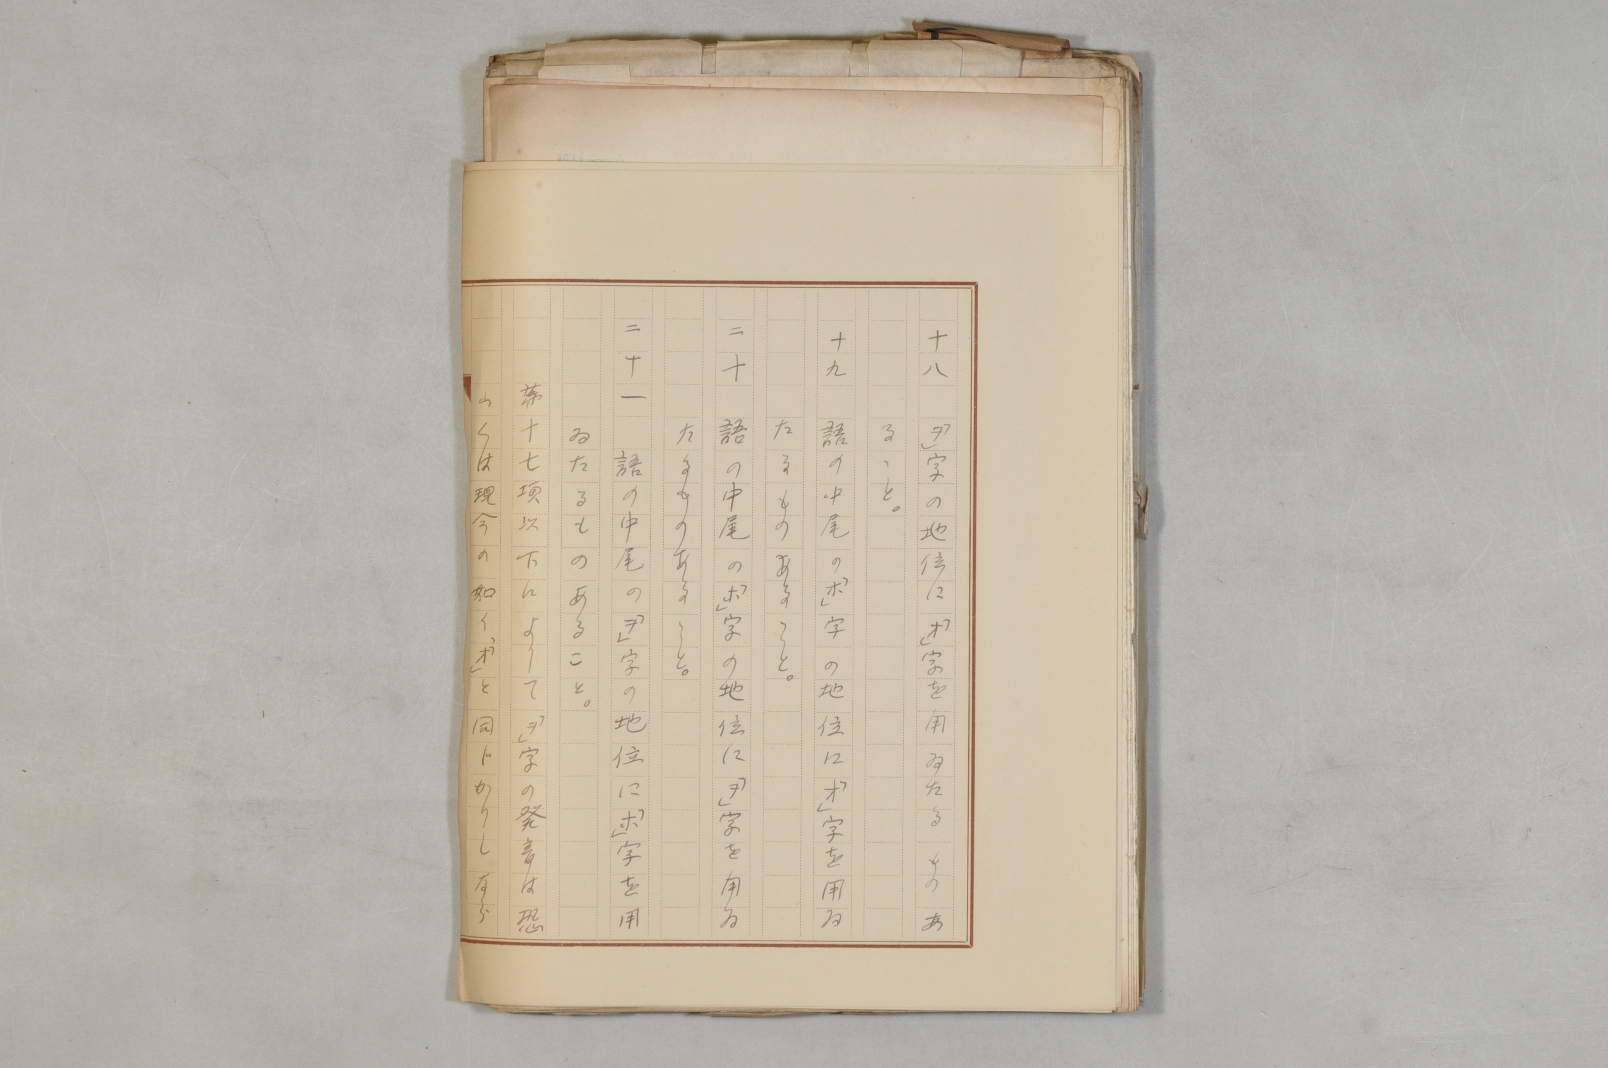 十八　「ヲ」字の地位に「オ」字を用ゐたるものあ
ること。
十九　語の中尾の「ホ」字の地位に「オ」字を用ゐ
たるものあること。
二十　語の中尾の「ホ」字の地位に「ヲ」字を用ゐ
たるものあること。
二十一　語の中尾の「ヲ」字の地位に「ホ」字を用
ゐたるものあること。
第十七項以下によりて「ヲ」字の発音は恐
らくは現今の如く、「オ」と同じかりしなら